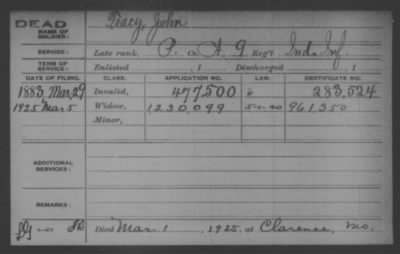 DEAD
NAME OF SOLDIER: Tracy, John
SERVICE: Late rank P. Co A, 9 Regt Ind. Inf.
TERM OF SERVICE: Enlisted , 1 Discharged , 1
DATE OF FILING. CLASS. APPLICATION NO. LAW. CERTIFICATE NO.
1883, Mar. 29 Invalid, 477,500 283,524
1925 Mar 5 Widow, 1230,099 5-1-20 961350
Minor,
ADDITIONAL SERVICES:
REMARKS:
Died Mar. 1, 1925, at Clarence, Mo.